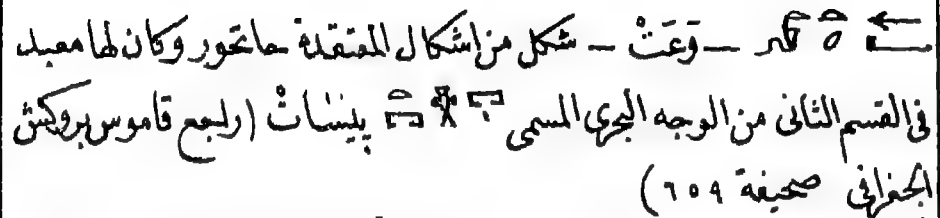 — وَعَتْ — شكل من اشكال المعتقدة حاتحور وكان لها معبد
فى القسم الثانى من الوجه البحرى المسمى پِيْسَاتْ (راجع قاموس بروكش
الجغرافى صحيفة ٦٥٩)